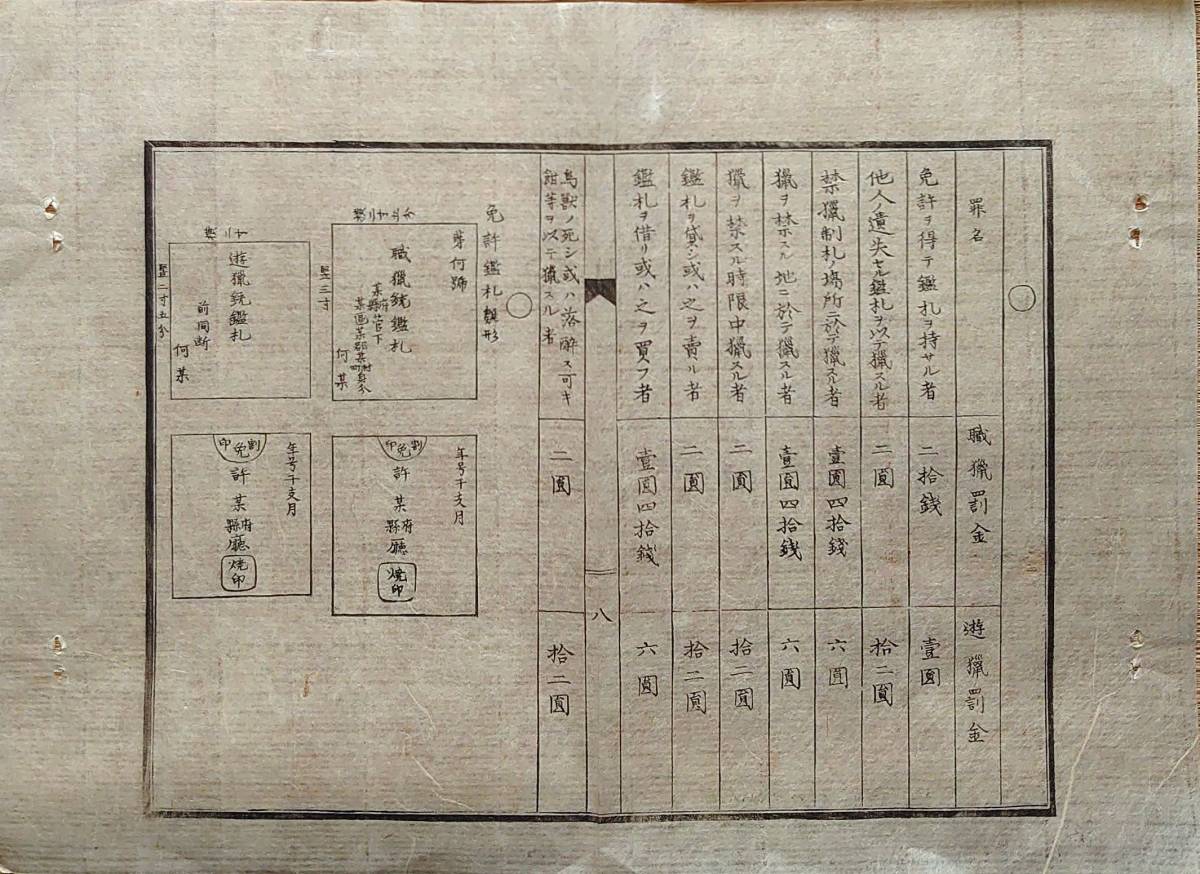 ○
罪名 職猟罰金 遊猟罰金
免許ヲ得テ鑑札ヲ持サル者 二拾銭 壹圓
他人ノ遺失セル鑑札ヲ以テ猟スル者 二圓 拾二圓
禁猟制札ノ場所ニ於テ猟スル者 壹圓四拾銭 六圓
猟ヲ禁スル地ニ於テ猟スル者 壹圓四拾銭 六圓
猟ヲ禁スル時限中猟スル者 二圓 拾二圓
鑑札ヲ貸シ或ハ之ヲ賣ル者 二圓 拾二圓
鑑札ヲ借リ或ハ之ヲ買フ者 壹圓四拾銭 六圓
八
鳥獣ノ死シ或ハ落酔ス可キ
餌等ヲ以テ猟スル者 二圓 拾二圓
○
免許鑑札雛形
第何號
職猟銃鑑札
某府縣管下
某區某郡某村町身分
何某
竪三寸
年号干支月
割免印
許
某府縣廳
焼印
遊猟銃鑑札
前同断
何某
竪二寸五分
年号干支月
割免印
許
某府縣廳
焼印